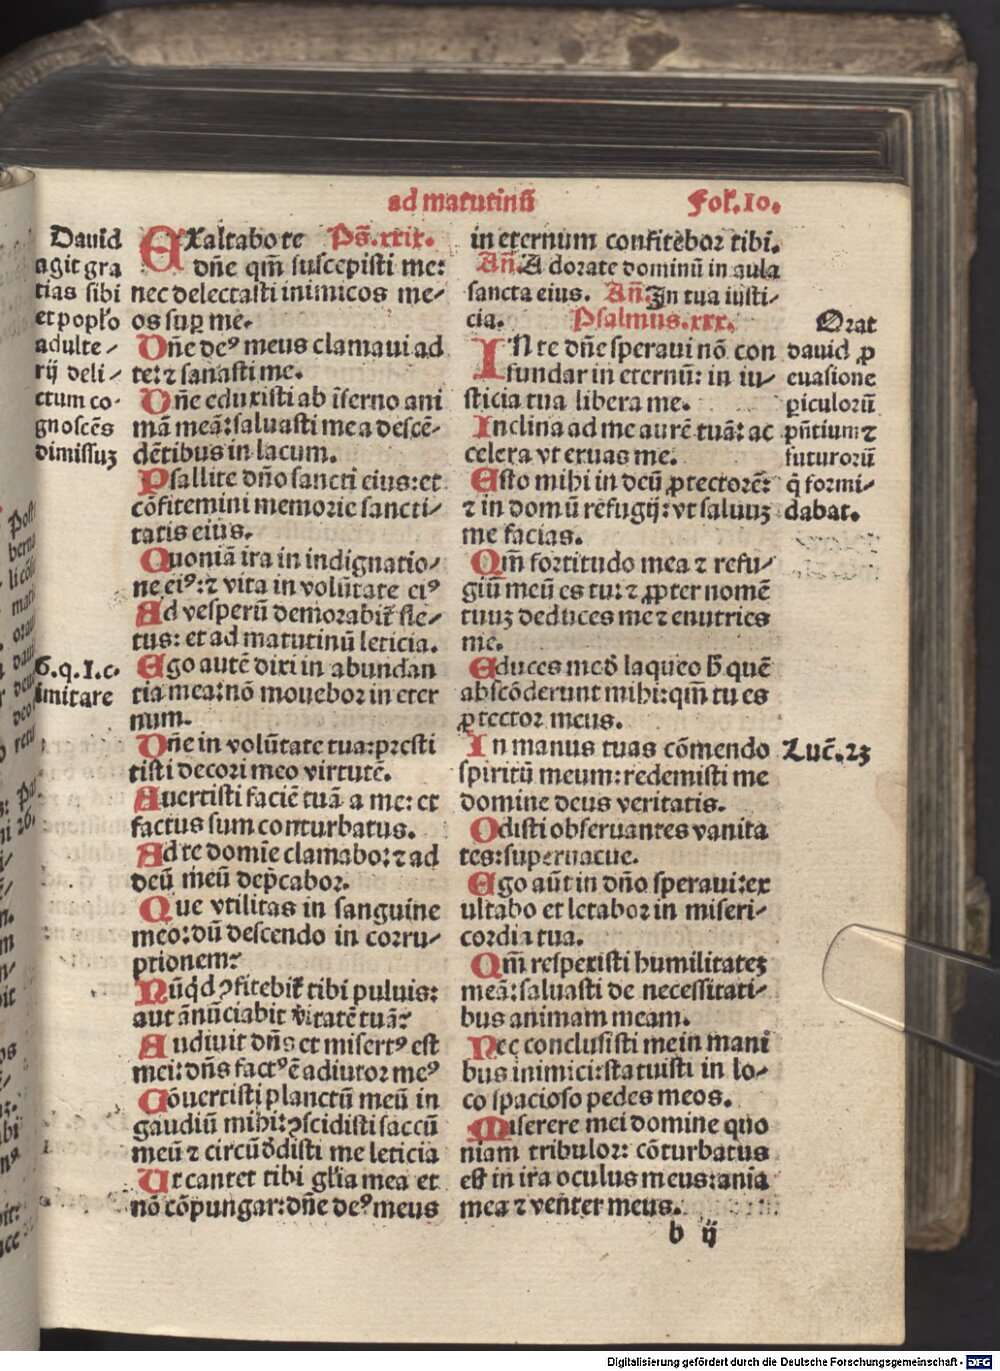 ad matutinū Fol'.10.
Dauid
agit gra
tias sibi
et pop̄lo
adulte⸗
rij deli⸗
ctum co⸗
gnoscēs
dimissuꝫ
G.q.1.c.
imitare
EXaltabo te Ps̄.xxix.
dn̄e qm̄ suscepisti me:
nec delectasti inimicos me⸗
os sup̱ me.
Dn̄e deꝰ meus clamaui ad
te: ⁊ sanasti me.
Dn̄e eduxisti ab īferno ani
mā meā: saluasti me a descē⸗
dētibus in lacum.
Psallite dn̄o sancti eius: et
cōfitemini memorie sancti⸗
tatis eius.
Quoniā ira in indignatio⸗
ne eiꝰ: ⁊ vita in volūtate eiꝰ
Ad vesperū demorabit̄ fle⸗
tus: et ad matutinū leticia.
Ego autē dixi in abundan
tia mea: nō mouebor in eter
num.
Dn̄e in volūtate tua: presti
tisti decori meo virtutē.
Auertisti faciē tuā a me: et
factus sum conturbatus.
Ad te domīe clamabo: ⁊ ad
deū meū dep̄cabor.
Que vtilitas in sanguine
meo: dū descendo in corru⸗
ptionem?
Nūqd ꝯfitebit̄ tibi puluis:
aut ānūciabit v̄itatē tuā?
Audiuit dn̄s et misertꝰ est
mei: dn̄s factꝰ ē adiutor meꝰ
Cōuertisti planctū meū in
gaudiū mihi: ꝯscidisti saccū
meū ⁊ circūd̄disti me leticia
Ut cantet tibi gl̄ia mea et
nō cōpungar: dn̄e deꝰ meus
in eternum confitebor tibi.
Añ. Adorate dominū in aula
sancta eius. Añ. In tua iusti⸗
cia. Psalmus.xxx.
IN te dn̄e speraui nō con
fundar in eternū: in iu⸗
sticia tua libera me.
Inclina ad me aurē tuā: ac
celera vt eruas me.
Esto mihi in deū ꝓtectorē:
⁊ in domū refugij: vt saluuꝫ
me facias.
Qm̄ fortitudo mea ⁊ refu⸗
giū meū es tu: ⁊ ꝓpter nomē
tuuꝫ deduces me ⁊ enutries
me.
Educes me d̄ laqueo h̄ quē
abscōderunt mihi: qm̄ tu es
ꝓtector meus.
In manus tuas cōmendo
spiritū meum: redemisti me
domine deus veritatis.
Odisti obseruantes vanita
tes: superuacue.
Ego aūt in dn̄o speraui: ex
ultabo et letabor in miseri⸗
cordia tua.
Qm̄ respexisti humilitateꝫ
meā: saluasti de necessitati⸗
bus animam meam.
Nec conclusisti me in mani
bus inimici: statuisti in lo⸗
co spacioso pedes meos.
Miserere mei domine quo
niam tribulor: cōturbatus
est in ira oculus meus: an̄ia
mea ⁊ venter meus.
b ij
Orat
dauid ꝓ
euasione
ꝑiculorū
pn̄tium ⁊
futurorū
q̄ formi⸗
dabat.
Luc̄.23
Digitalisierung gefördert durch die Deutsche Forschungsgemeinschaft - DFG